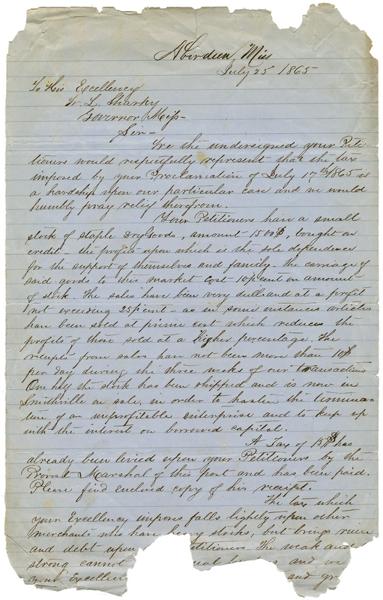 Aberdeen, Miss
July 25 1865
To His Excellency
W. L. Sharky
Governor Miss
Sir -
We the undersigned your Peti
tioners would respectfully represent that the tax
imposed by your Proclamation of July 17th 1865 is
a hardship upon our particular case and we would
humbly pray relief therefrom.
Your Petitioners have a small
stock of staple Dry Goods, amount bought on
credit - the profits upon which is the sole dependence
for the support of themselves and family. The carriage of
said goods to this market cost 10 per cent on amount
of stock. The sales have been very dull and at a profit
not exceeding 25 per ct - as in some instances articles
have been sold at prime cost which reduces the
profits of those sold at a higher percentage. The
receipts from sales have not been more than
per day during the three weeks of our transactions
One half the stock has been shipped and is now in
Smithville on sale, in order to hasten the termina
ture of an unprofitable enterprise and to keep up
with the interest on borrowed capital.
A Tax of has
already been levied upon your Petitioners by the
Provost Marshal of this post and has been paid.
Please find enclosed copy of his receipt.
The tax which
your Excellency imposes falls lightly upon other
merchants who have heavy stocks, but brings ruin
and debt upon titioners. The weak and
strong cannot and
your Excellen and